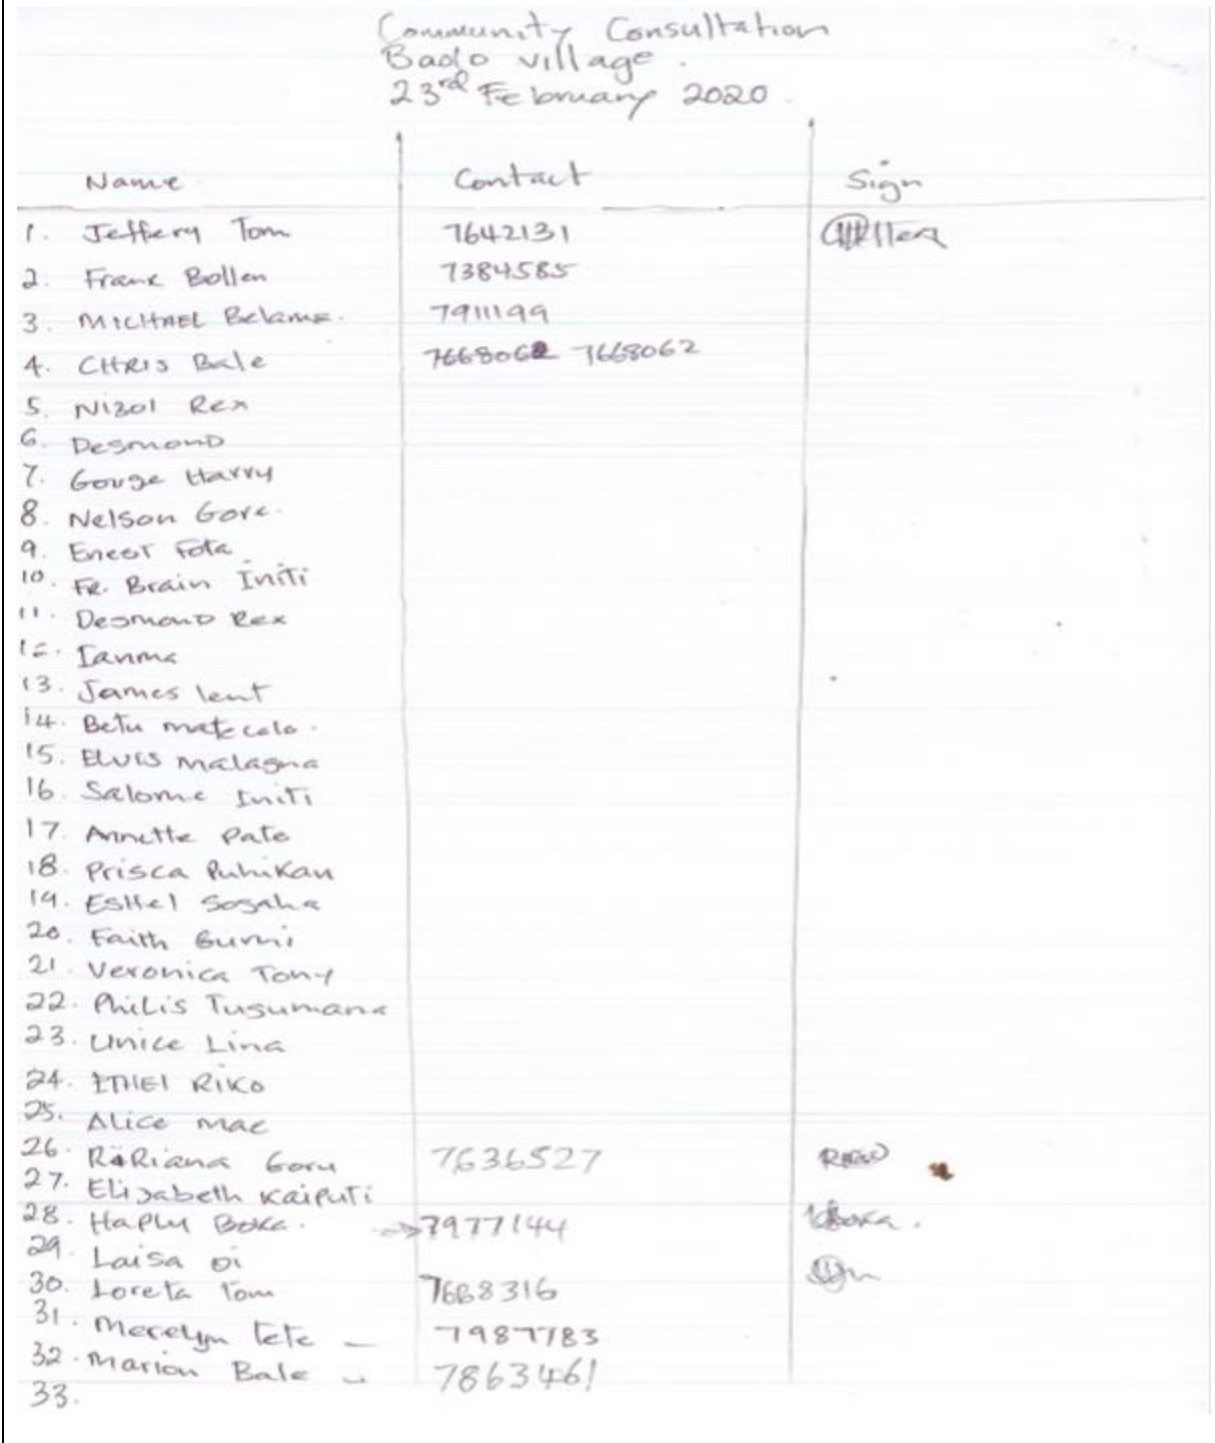 Community Consultation
Bado village.
23rd February 2020.
Name Contact Sign
1. Jeffery Tom 7642131
2. Frank Bollen 7384585
3. MICHAEL Belama. 7911199
4. CHRIS Bale 7668062 7668062
5. Nizol Rex
6. Desmond
7. Gouge Harry
8. Nelson Gore.
9. Enest Fota
10. FR. Brain Initi
11. Desmond Rex
12. Ianma
13. James lent
14. Betu matecalo.
15. Elvis malagna
16. Salome Initi
17. Annette Pato
18. Prisca Puhikan
19. Esthel Sogaha
20. Faith Gumi
21. Veronica Tony
22. Philis Tusumana
23. Unice Lina
24. ITHEl RIKO
25. Alice mae
26. Ririana Goru 7636527
27. Elizabeth Kaiputi
28. Haply Boka. → 7977144 Kboka.
29. Laisa oi
30. Loreta Tom 7668316
31. Merelyn tete – 7987783
32. Marion Bale – 7863461
33.